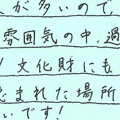 が多いので、
雰囲気の中、過
！文化財にも
まれた場所
いです！